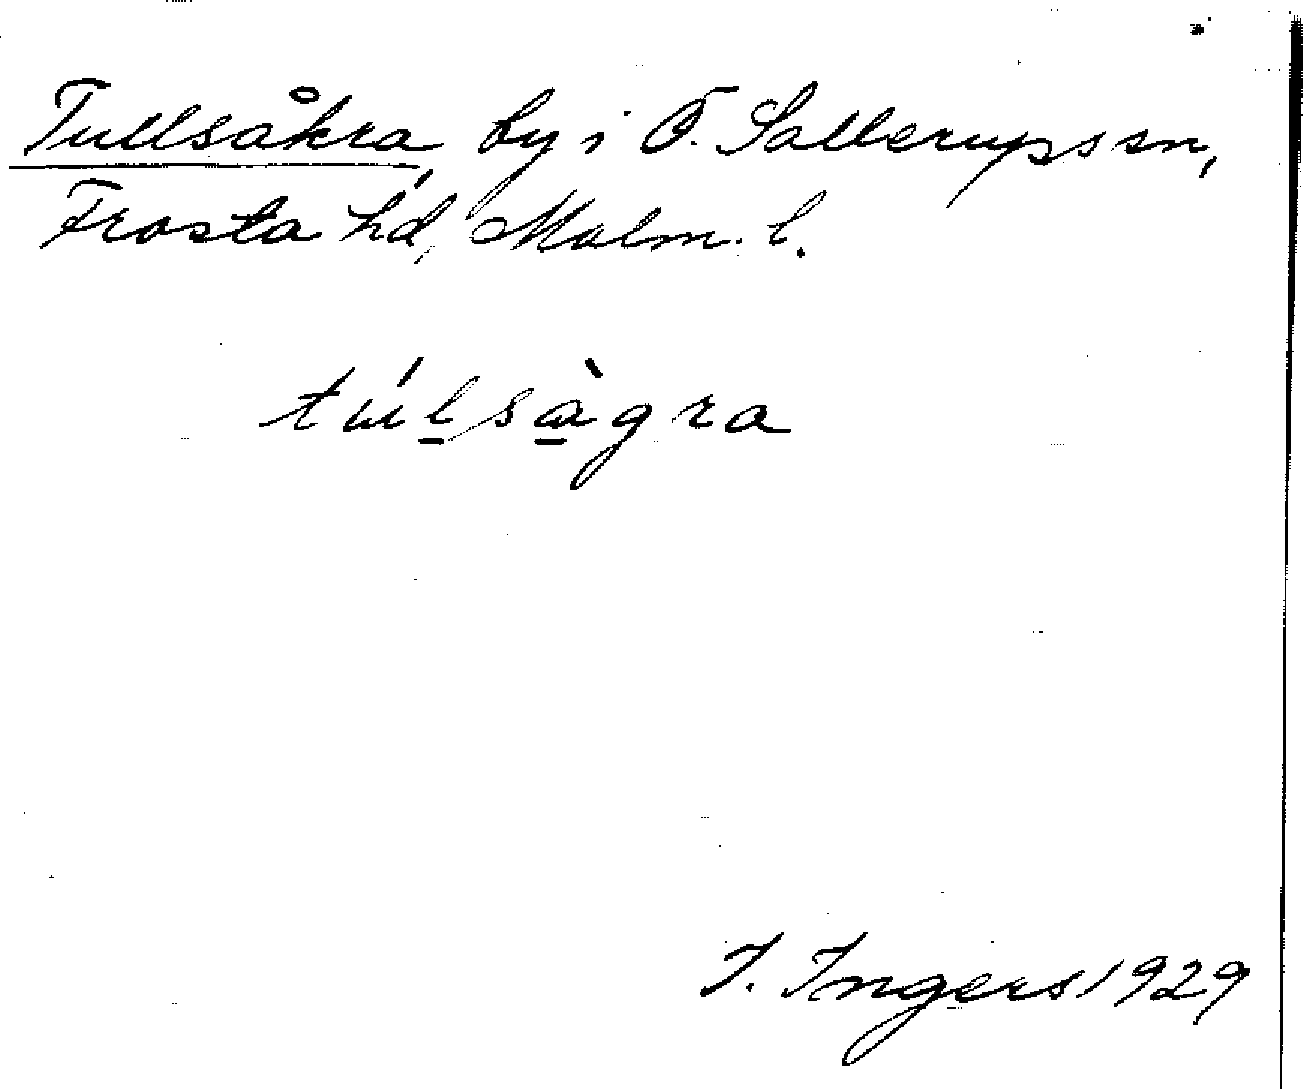 Tullsåkra, by i Ö. Sallerups sn,
Frosta hd, Malm. l.
túlsàgra
I. Ingers 1929